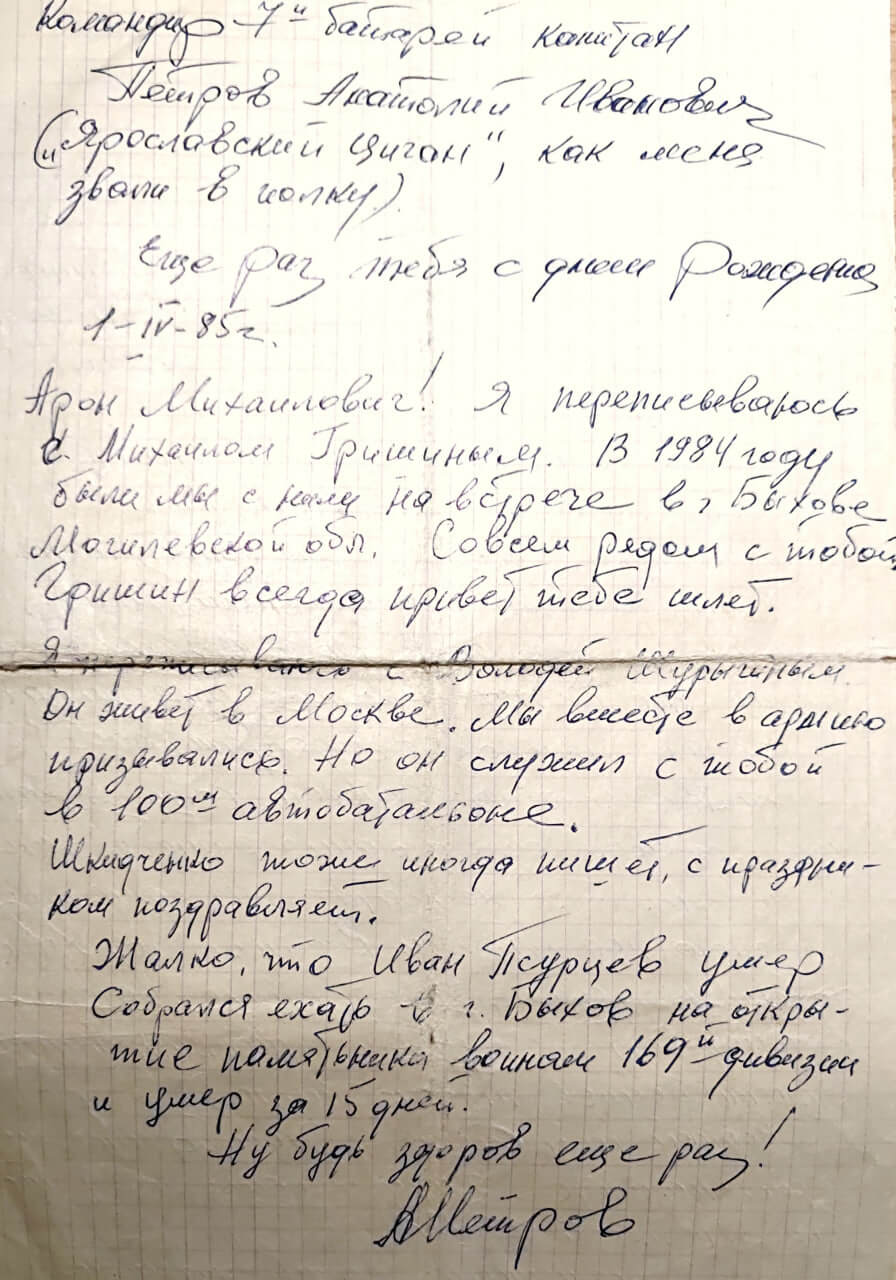 Командир 7й батареи капитан
Петров Анатолий Иванович
(„Ярославский цыган“, как меня
звали в полку).
Еще раз тебя с днем Рождения
1-IV-85г.
Арон Михаилович! Я переписываюсь
с Михаилом Гришиным. В 1984 году
были мы с ним на встрече в г Быхове
Могилевской обл. Совсем рядом с тобой.
Гришин всегда привет тебе шлет.
Я переписываюсь с Володей Шурыгиным.
Он живет в Москве. Мы вместе в армию
призывались. Но он служил с тобой
в 100м автобатальоне.
Шкидченко тоже иногда пишет, с праздни-
ком поздравляет.
Жалко, что Иван Псурцев умер
Собрался ехать в г. Быхов на откры-
тие памятьника воинам 169й дивизии
и умер за 15 дней.
Ну будь здоров еще раз!
АПетров